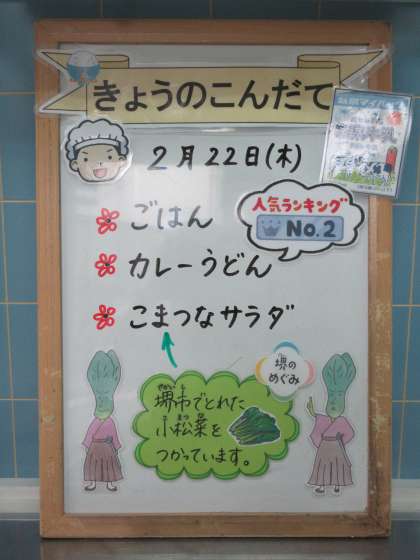 きょうのこんだて
2月22日(木)
ごはん
人気ランキング
No.2
カレーうどん
こまつなサラダ
堺の
めぐみ
堺市でとれた
小松菜を
つかっています。